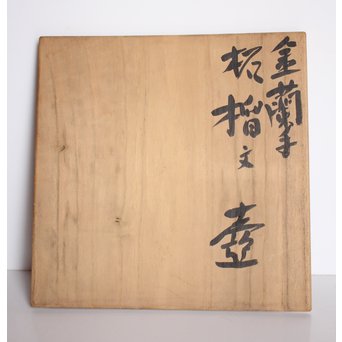 金蘭手
柘榴文 壺